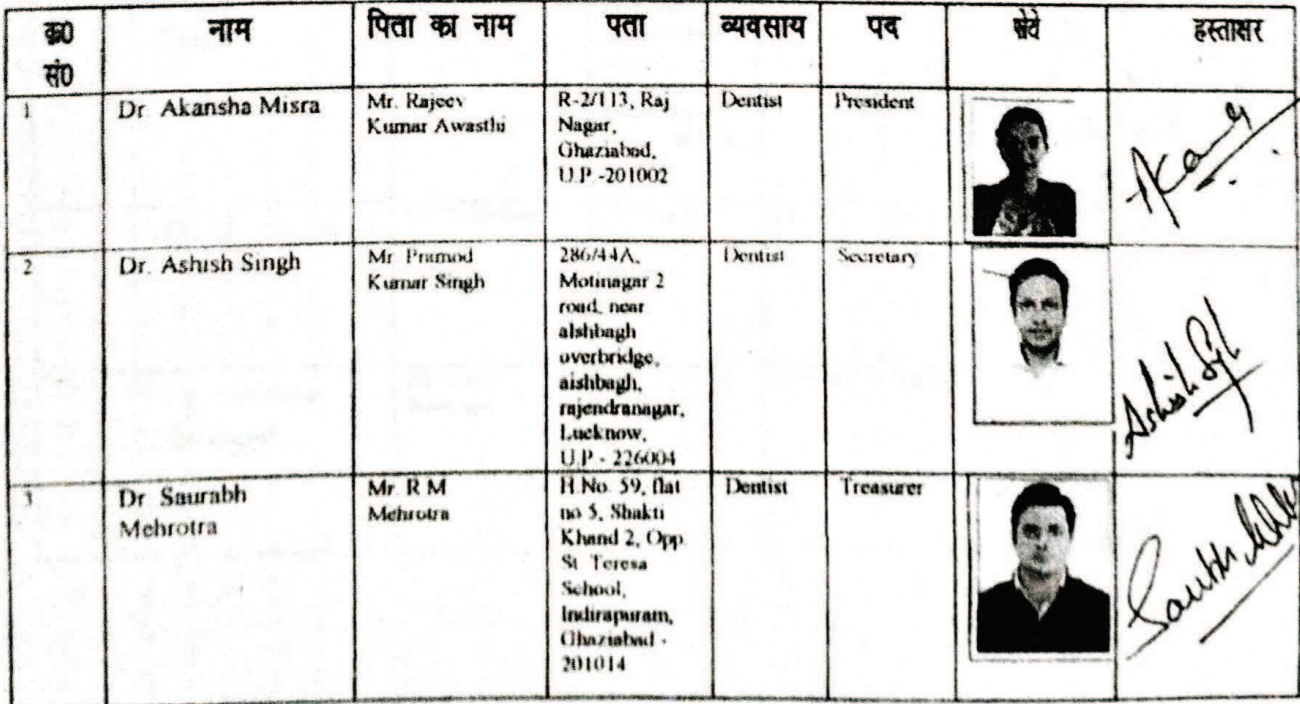 क्र0 सं0 नाम पिता का नाम पता व्यवसाय पद हस्ताक्षर
1 Dr. Akansha Misra Mr. Rajeev Kumar Awasthi R-2/113, Raj Nagar, Ghaziabad, U.P.-201002 Dentist President
2 Dr. Ashish Singh Mr. Pramod Kumar Singh 286/44A, Motinagar 2 road, near alshbagh overbridge, aishbagh, rajendranagar, Lucknow, U.P - 226004 Dentist Secretary
3 Dr. Saurabh Mehrotra Mr. R M Mehrotra H.No. 59, flat no 5, Shakti Khand 2, Opp. St. Teresa School, Indirapuram, Ghaziabad - 201014 Dentist Treasurer